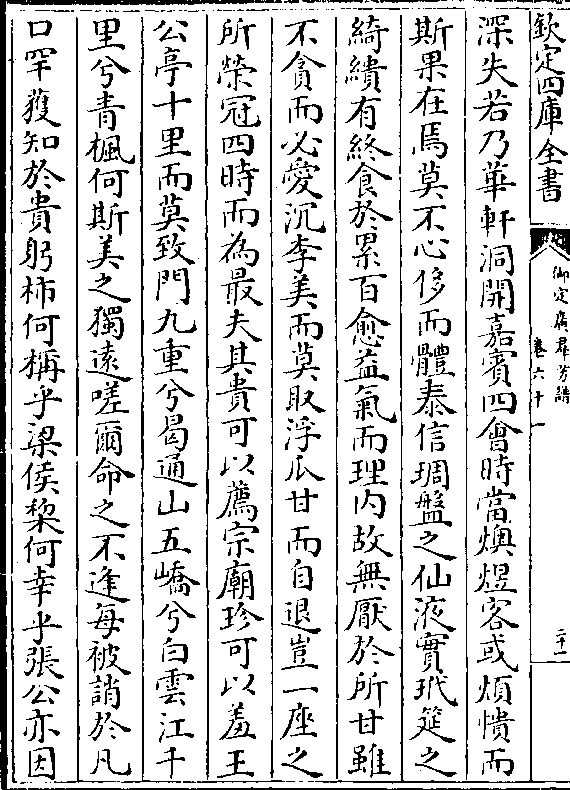 欽定四庫全書
御定廣羣芳譜
卷六十一
二十一
深失若乃華軒洞開嘉賓四會時當燠煜客或煩憒而
斯果在焉莫不心侈而體泰信琱盤之仙液實玳筵之
綺繢有終食於累百愈益氣而理内故無厭於所甘雖
不貪而必愛沉李美而莫取浮瓜甘而自退豈一座之
所榮冠四時而為最夫其貴可以薦宗廟珍可以羞王
公亭十里而莫致門九重兮曷通山五嶠兮白雲江千
里兮青楓何斯美之獨遠嗟爾命之不逢每被誚於凡
口罕獲知於貴躬柿何稱乎梁侯棃何幸乎張公亦因